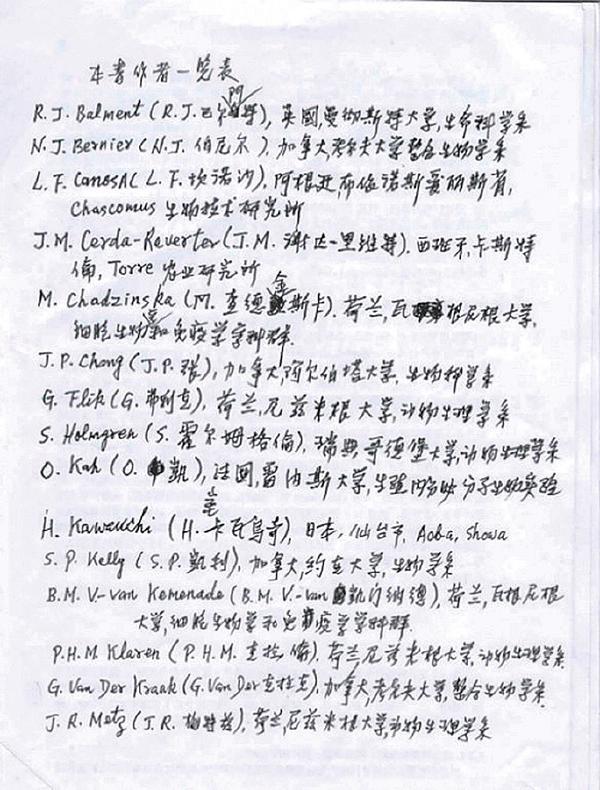 本書作者一览表
R.J. Balment (R.J.巴尔門特), 英國,曼彻斯特大学,生命科学系
N.J. Bernier (N.J. 伯尼尔), 加拿大,考尔夫大学整合生物学系
L.F. Canosa (L.F. 坎诺沙), 阿根廷布依诺斯爱丽斯省,
Chascomus 生物技术研究所
J.M. Cerda-Reverter (J.M. 谢达-里维特). 西班牙,卡斯特
倫, Torre 农业研究所
M. Chadzinska (M. 查德金斯卡). 荷兰,瓦根尼根大学,
细胞生物学和免疫学学科群.
J.P. Chang (J.P. 張), 加拿大,阿尔伯塔大学, 生物科学系
G. Flik (G. 弗利克), 荷兰,尼兹米根大学,动物生理学系
S. Holmgren (S. 霍尔姆格倫), 瑞典,哥德堡大学,动物生理学系
O. Kah (O. 凯), 法國,雷内斯大学,生殖内分泌分子生物实验
室
H. Kawauchi (H. 卡瓦烏奇), 日本, 仙台市, Aoba, Showa
S.P. Kelly (S.P. 凯利), 加拿大,约克大学,生物学系
B.M. V.-van Kemenade (B.M. V.-van 凯门纳德), 荷兰,瓦根尼根
大学,细胞生物学和免疫学学科群.
P.H.M Klaren (P.H.M. 克拉倫). 荷兰尼兹米根大学,动物生理学系
G. Van Der Kraak (G. Van Der 克拉克),加拿大,考尔夫大学,整合生物学系
J.R. Metz (J.R. 梅特兹), 荷兰,尼兹米根大学动物生理学系